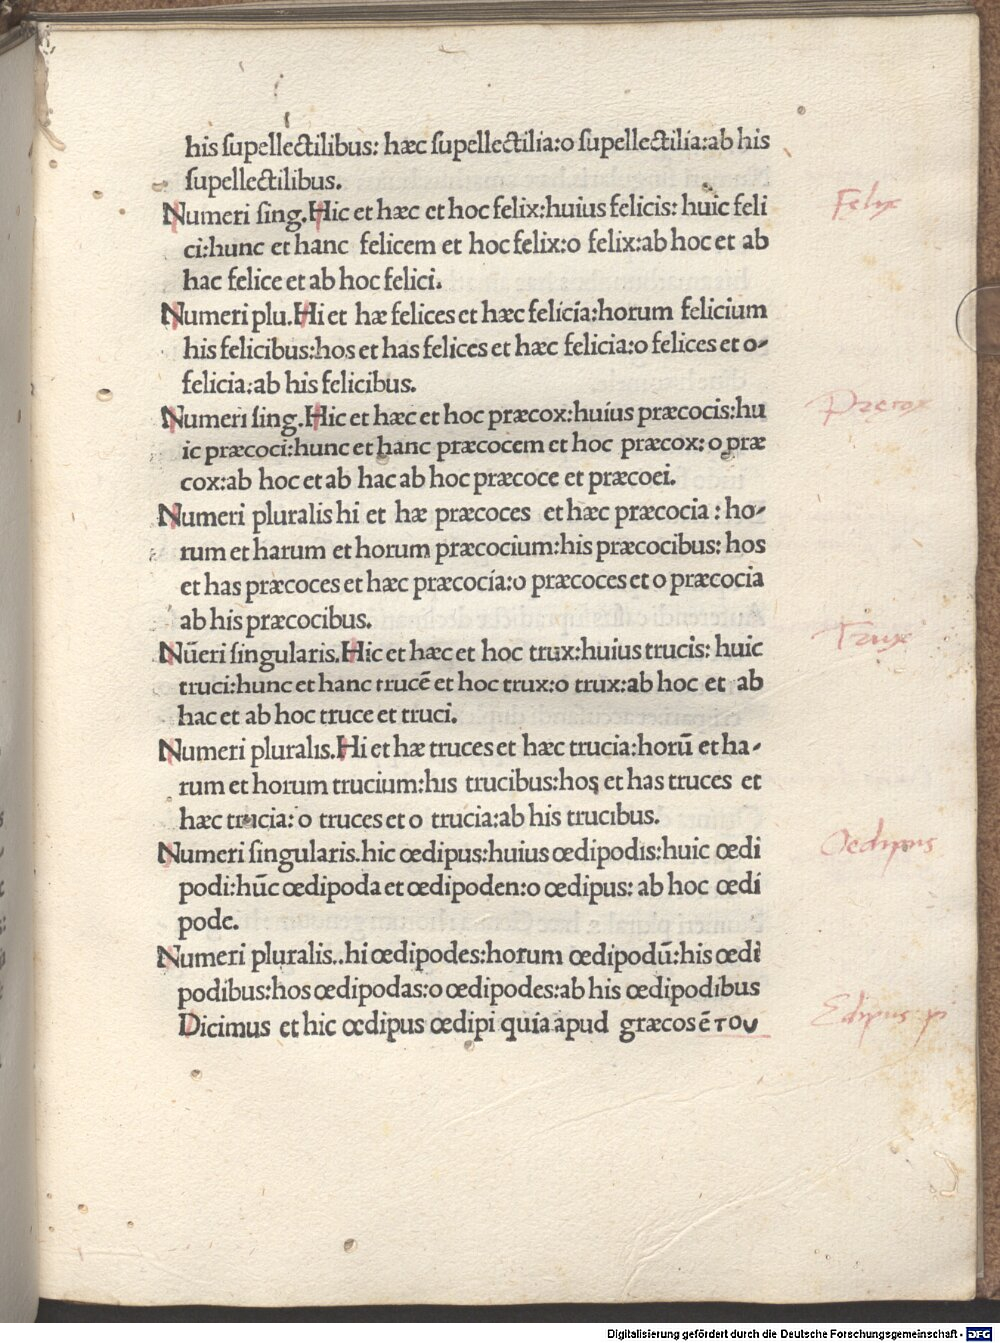 his ſupellectilibus: hæc ſupellectilia:o ſupellectilia:ab his
ſupellectilibus.
Numeri ſing. Hic et hæc et hoc felix:huius felicis: huic feli
ci:hunc et hanc felicem et hoc felix:o felix:ab hoc et ab
hac felice et ab hoc felici.
Numeri plu. Hi et hæ felices et hæc felicia:horum felicium
his felicibus:hos et has felices et hæc felicia:o felices et o-
felicia:ab his felicibus.
Numeri ſing. Hic et hæc et hoc præcox:huius præcocis:hu
ic præcoci:hunc et hanc præcocem et hoc præcox: o præ
cox:ab hoc et ab hac ab hoc præcoce et præcoei.
Numeri pluralis hi et hæ præcoces et hæc præcocia : ho-
rum et harum et horum præcocium:his præcocibus: hos
et has præcoces et hæc præcocia:o præcoces et o præcocia
ab his præcocibus.
Nūeri ſingularis. Hic et hæc et hoc trux:huius trucis: huic
truci:hunc et hanc trucē et hoc trux:o trux:ab hoc et ab
hac et ab hoc truce et truci.
Numeri pluralis. Hi et hæ truces et hæc trucia:horū et ha-
rum et horum trucium:his trucibus:hos et has truces et
hæc trucia: o truces et o trucia:ab his trucibus.
Numeri ſingularis.hic œdipus:huius œdipodis:huic œdi
podi:hūc œdipoda et œdipoden:o œdipus: ab hoc œdi
pode.
Numeri pluralis..hi œdipodes:horum œdipodū:his œdi
podibus:hos œdipodas:o œdipodes:ab his œdipodibus
Dicimus et hic œdipus œdipi quia apud græcos ē του
Felix
Præcox
Trux
Oedipus
Edipus pi
Digitalisierung gefördert durch die Deutsche Forschungsgemeinschaft - DFG